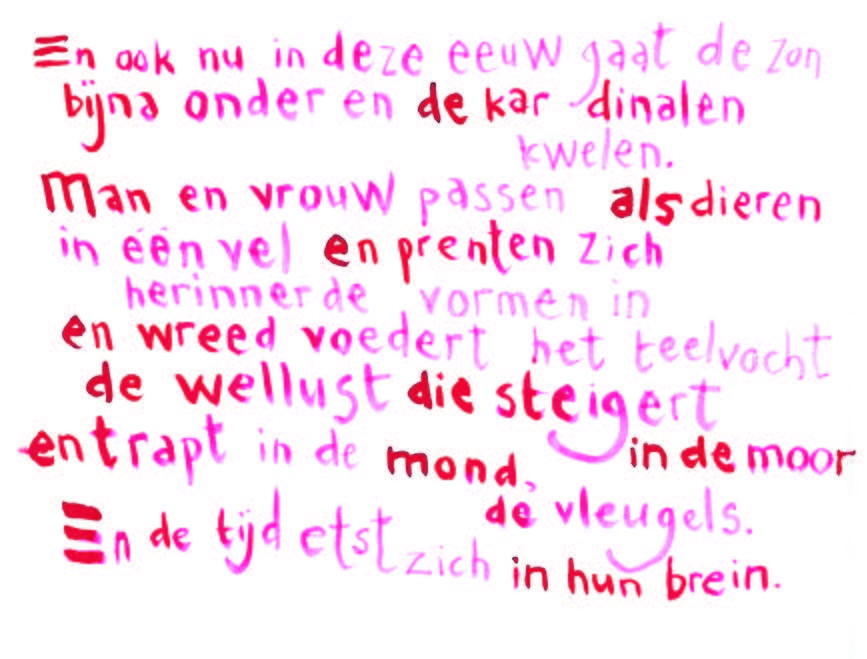 En ook nu in deze eeuw gaat de zon
bijna onder en de kar dinalen
kwelen.
Man en vrouw passen als dieren
in één vel en prenten zich
herinnerde vormen in
en wreed voedert het teelvocht
de wellust die steigert
en trapt in de mond, in de moor
de vleugels.
En de tijd etst zich in hun brein.